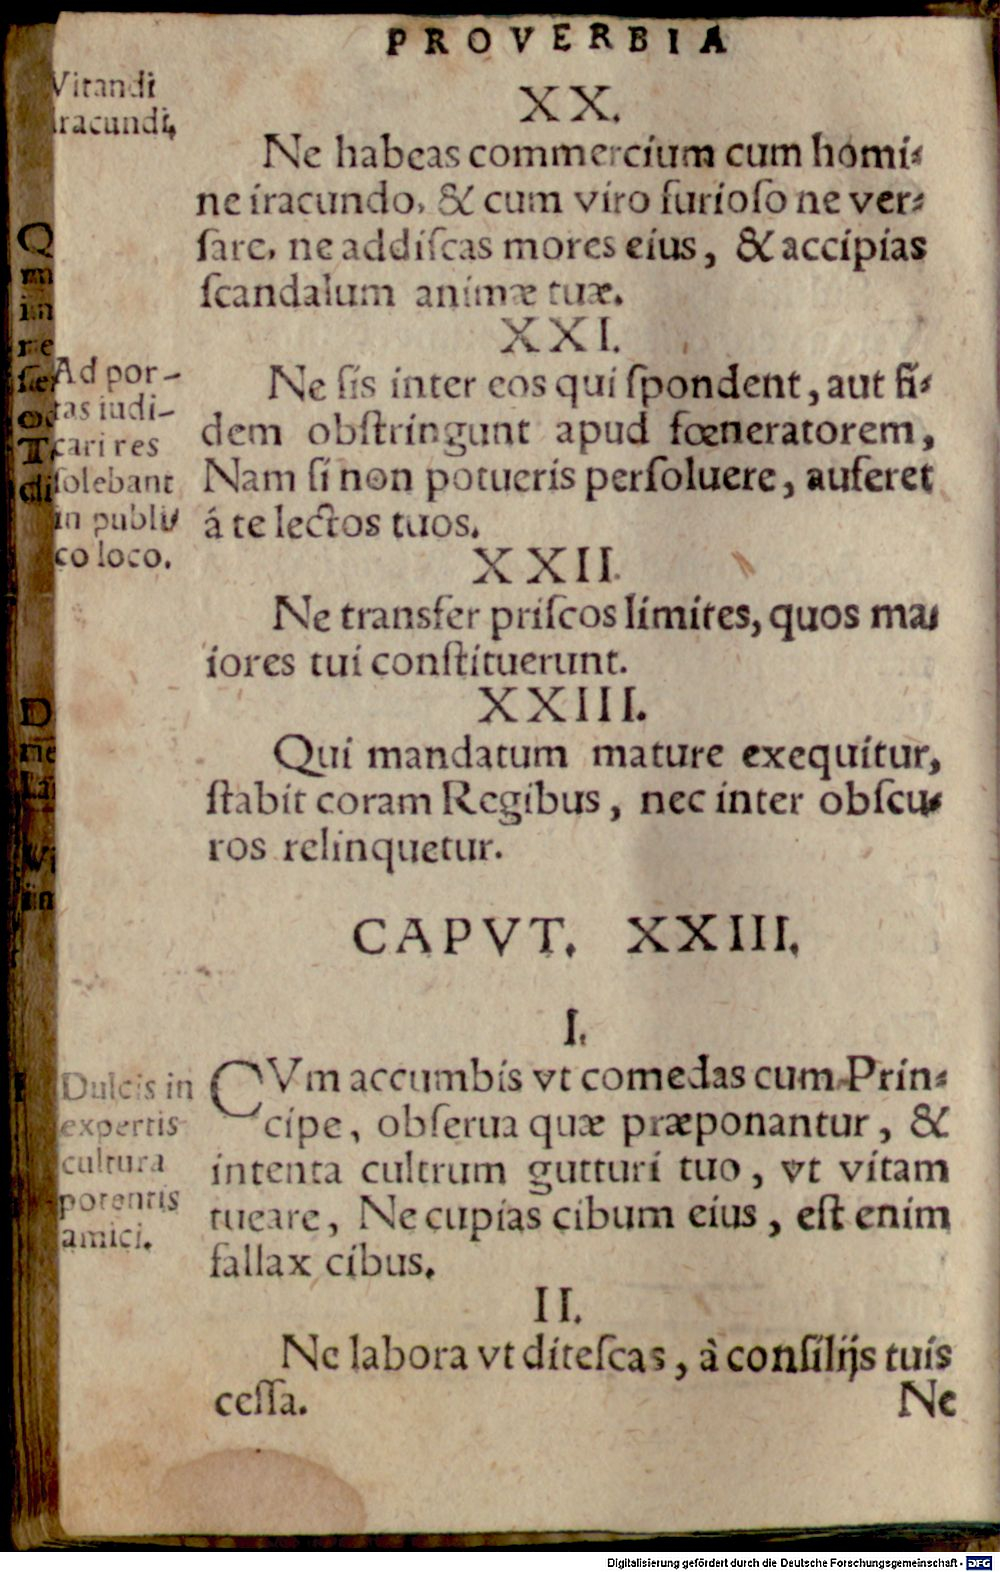 PROVERBIA
Vitandi
iracundi.
XX.
Ne habeas commercium cum homi-
ne iracundo, & cum viro furioſo ne ver-
ſare, ne addiſcas mores eius, & accipias
ſcandalum animæ tuæ.
XXI.
Ad por-
tas iudi-
cari res
ſolebant
in publi-
co loco.
Ne ſis inter eos qui ſpondent, aut fi-
dem obſtringunt apud fœneratorem,
Nam ſi non potueris perſoluere, auferet
á te lectos tuos.
XXII.
Ne transfer priſcos limites, quos ma-
iores tui conſtituerunt.
XXIII.
Qui mandatum mature exequitur,
ſtabit coram Regibus, nec inter obſcu-
ros relinquetur.
CAPVT. XXIII.
I.
Dulcis in
expertis
cultura
potentis
amici.
CVm accumbis vt comedas cum Prin-
cipe, obſerua quæ præponantur, &
intenta cultrum gutturi tuo, vt vitam
tueare, Ne cupias cibum eius, eſt enim
fallax cibus.
II.
Ne labora vt diteſcas, à conſilijs tuis
ceſſa.
Ne
Digitalisierung gefördert durch die Deutsche Forschungsgemeinschaft - DFG